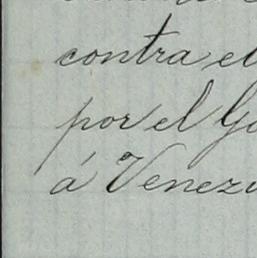 contra el
por el Go
á Venezu